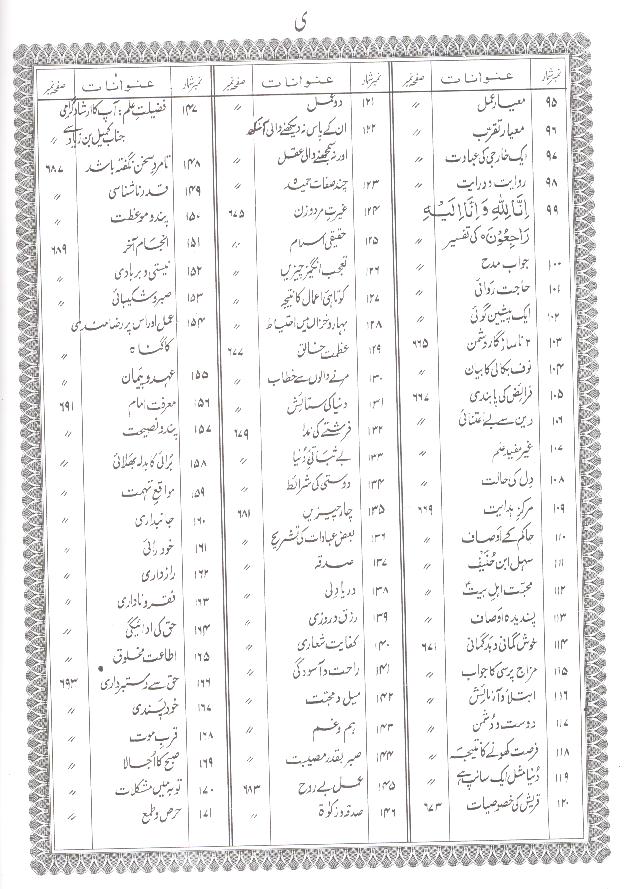 ی
نمبر شمار عنوانات صفحہ نمبر
۹۵ معیار عمل 〃
۹۶ معیار تقرّب 〃
۹۷ ایک خارجی کی عبادت 〃
۹۸ روایت و درایت 〃
۹۹ اِنَّا لِلّٰہِ وَ اِنَّا اِلَیْہِ
رَاجِعُوْنَ کی تفسیر 〃
۱۰۰ جواب مدح 〃
۱۰۱ حاجت روائی 〃
۱۰۲ ایک پیشین گوئی 〃
۱۰۳ ۲ ناسازگار دشمن ۶۶۵
۱۰۴ نوف بکالی کا بیان 〃
۱۰۵ فرائض کی پابندی ۶۶۷
۱۰۶ دین سے بے اعتنائی 〃
۱۰۷ غیر مفید علم 〃
۱۰۸ دل کی حالت 〃
۱۰۹ مرکز ہدایت ۶۶۹
۱۱۰ حاکم کے اوصاف 〃
۱۱۱ سہل ابن حُنَیْف 〃
۱۱۲ محبّت اہل بیتؑ 〃
۱۱۳ پسندیدہ اوصاف 〃
۱۱۴ خوش گمانی و بدگمانی ۶۷۱
۱۱۵ مزاج پرسی کا جواب 〃
۱۱۶ ابتلاء و آزمائش 〃
۱۱۷ دوست و دشمن 〃
۱۱۸ فرصت کھونے کا نتیجہ 〃
۱۱۹ دُنیا مثل ایک سانپ ہے 〃
۱۲۰ قریش کی خصوصیات ۶۷۳
نمبر شمار عنوانات صفحہ نمبر
۱۲۱ دو عمل 〃
۱۲۲ ان کے پاس نہ دیکھنے والی آنکھ
اور نہ سمجھنے والی عقل 〃
۱۲۳ چند صفات حمیدہ 〃
۱۲۴ غیرتِ مرد و زن ۶۷۵
۱۲۵ حقیقی اسلام 〃
۱۲۶ تعجب انگیز چیزیں 〃
۱۲۷ کوتاہیٔ اعمال کا نتیجہ 〃
۱۲۸ بہار و خزاں میں احتیاط 〃
۱۲۹ عظمت خالق ۶۷۷
۱۳۰ مرنے والوں سے خطاب 〃
۱۳۱ دنیا کی ستائش 〃
۱۳۲ فرشتے کی ندا ۶۷۹
۱۳۳ بے ثباتیٔ دُنیا 〃
۱۳۴ دوستی کی شرائط 〃
۱۳۵ چار چیزیں ۶۸۱
۱۳۶ بعض عبادات کی تشریح 〃
۱۳۷ صدقہ 〃
۱۳۸ دریا دلی 〃
۱۳۹ رزق و روزی 〃
۱۴۰ کفایت شعاری 〃
۱۴۱ راحت و آسودگی 〃
۱۴۲ میل و محبت 〃
۱۴۳ ہم و غم 〃
۱۴۴ صبر بقدر مصیبت 〃
۱۴۵ عمل بے روح ۶۸۳
۱۴۶ صدقہ و زکوٰۃ 〃
نمبر شمار عنوانات صفحہ نمبر
۱۴۷ فضیلتِ علم؛ آپ کا ارشاد گرامی
جناب کمیل بن زیاد سے 〃
۱۴۸ تا مرد سخن نگفتہ باشد ۶۸۷
۱۴۹ قدر ناشناسی 〃
۱۵۰ پند و موعظت 〃
۱۵۱ انجام آخر ۶۸۹
۱۵۲ نیستی و بربادی 〃
۱۵۳ صبر و شکیبائی 〃
۱۵۴ عمل اور اس پر رضامندی
کا گناہ 〃
۱۵۵ عہد و پیمان 〃
۱۵۶ معرفت امام ۶۹۱
۱۵۷ پند و نصیحت 〃
۱۵۸ برائی کا بدلہ بھلائی 〃
۱۵۹ مواقع تہمت 〃
۱۶۰ جانبداری 〃
۱۶۱ خود رائی 〃
۱۶۲ رازداری 〃
۱۶۳ فقر و ناداری 〃
۱۶۴ حق کی ادائیگی 〃
۱۶۵ اطاعت مخلوق 〃
۱۶۶ حق سے دستبرداری ۶۹۳
۱۶۷ خود پسندی 〃
۱۶۸ قرب موت 〃
۱۶۹ صبح کا اجالا 〃
۱۷۰ توبہ میں مشکلات 〃
۱۷۱ حرص و طمع 〃